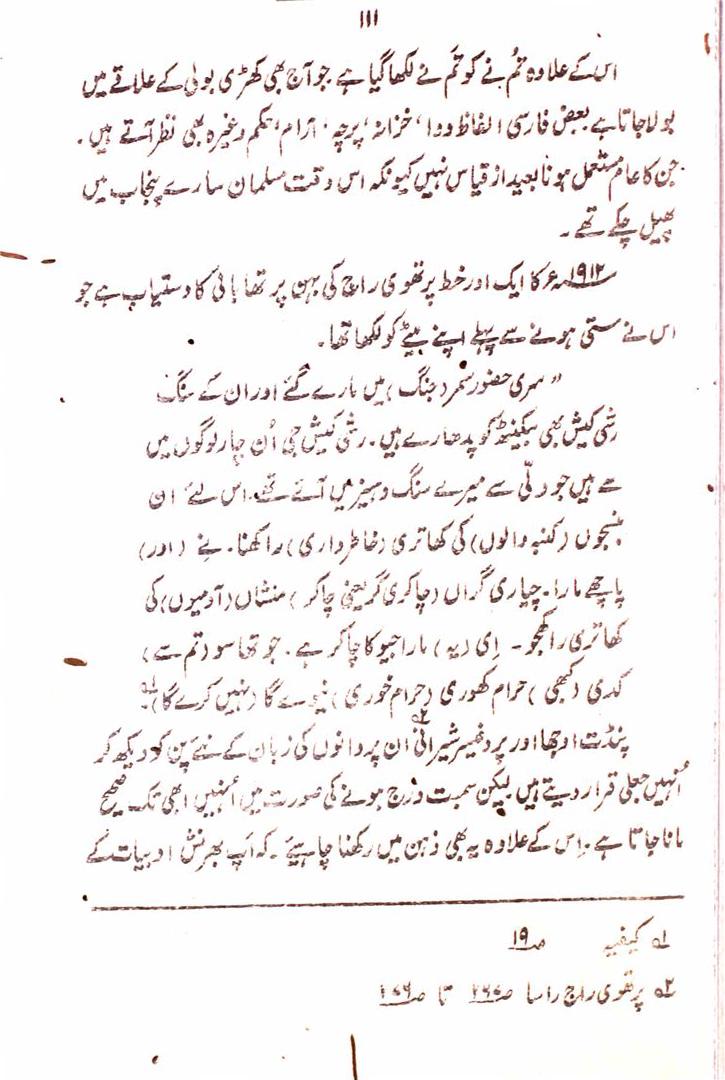 ۱۱۱
اس کے علاوہ تُم نے کو تَم نے لکھا گیا ہے جو آج بھی کھڑی بولی کے علاقے میں
بولا جاتا ہے بعض فارسی الفاظ دوا، خزانہ، پرچہ، آرام، حکم وغیرہ بھی نظر آتے ہیں۔
جن کا عام مستعمل ہونا بعید از قیاس نہیں کیونکہ اس وقت مسلمان سارے پنجاب میں
پھیل چکے تھے۔
۱۹۱۲ءکا ایک اور خط پرتھوی راج کی بہن پرتھا بائی کا دستیاب ہے جو
اس نے ستی ہونے سے پہلے اپنے بیٹے کو لکھا تھا۔
"سری حضور سمر (جنگ) میں مارے گئے اور ان کے سنگ
رشی کیش بھی بیکینٹھ کو پدھارے ہیں۔ رشی کیش جی اُن چار لوگوں میں
سے ہیں جو دلّی سے میرے سنگ دہیز میں آئے تھے۔ اس لئے ان
(کنبہ والوں) کی کھاتری (خاطرداری) راکھنا۔ نے (اور)
پاچھے مارا۔ چیاری گراں (چاکری گر یعنی چاکر) منشاں (آدمیوں) کی
کھاتری راکھجو۔ ای (یہ) مارا جیو کا چاکر ہے۔ جو تھا سو (تم سے)
کدی (کبھی) حرام کھوری (حرام خوری) نیوے گا (نہیں کرے گا)۔ ؎۱
پنڈت اوجھا اور پروفیسر شیرانی ؎۲ ان پروانوں کی زبان کے نئے پن کو دیکھ کر
اُنہیں جعلی قرار دیتے ہیں لیکن سمبت درج ہونے کی صورت میں اُنہیں ابھی تک صحیح
مانا جاتا ہے۔ اِس کے علاوہ یہ بھی ذہن میں رکھنا چاہیئے۔ کہ اَپ بھرنش ادبیات کے
؎۱ کیفیہ ص۱۹
؎۲ پرتھوی راج راسا تا